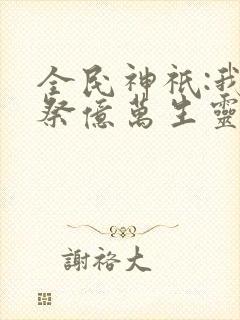 全民神祇:我
祭億萬生靈
謝裕大